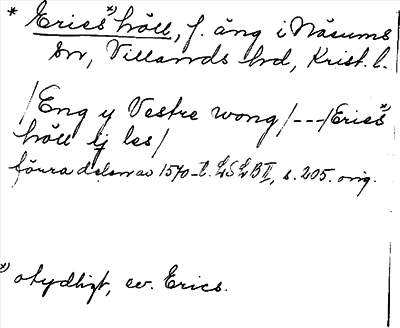 * Erics*) höll, f. äng i Näsums
sn, Villands hd, Krist. l.
/Eng y Vestre wong/---/Erics*)
höll ij les/
förra delen av 1570-t. LSLB II, s. 205. orig.
*) otydligt, ev. Erics.